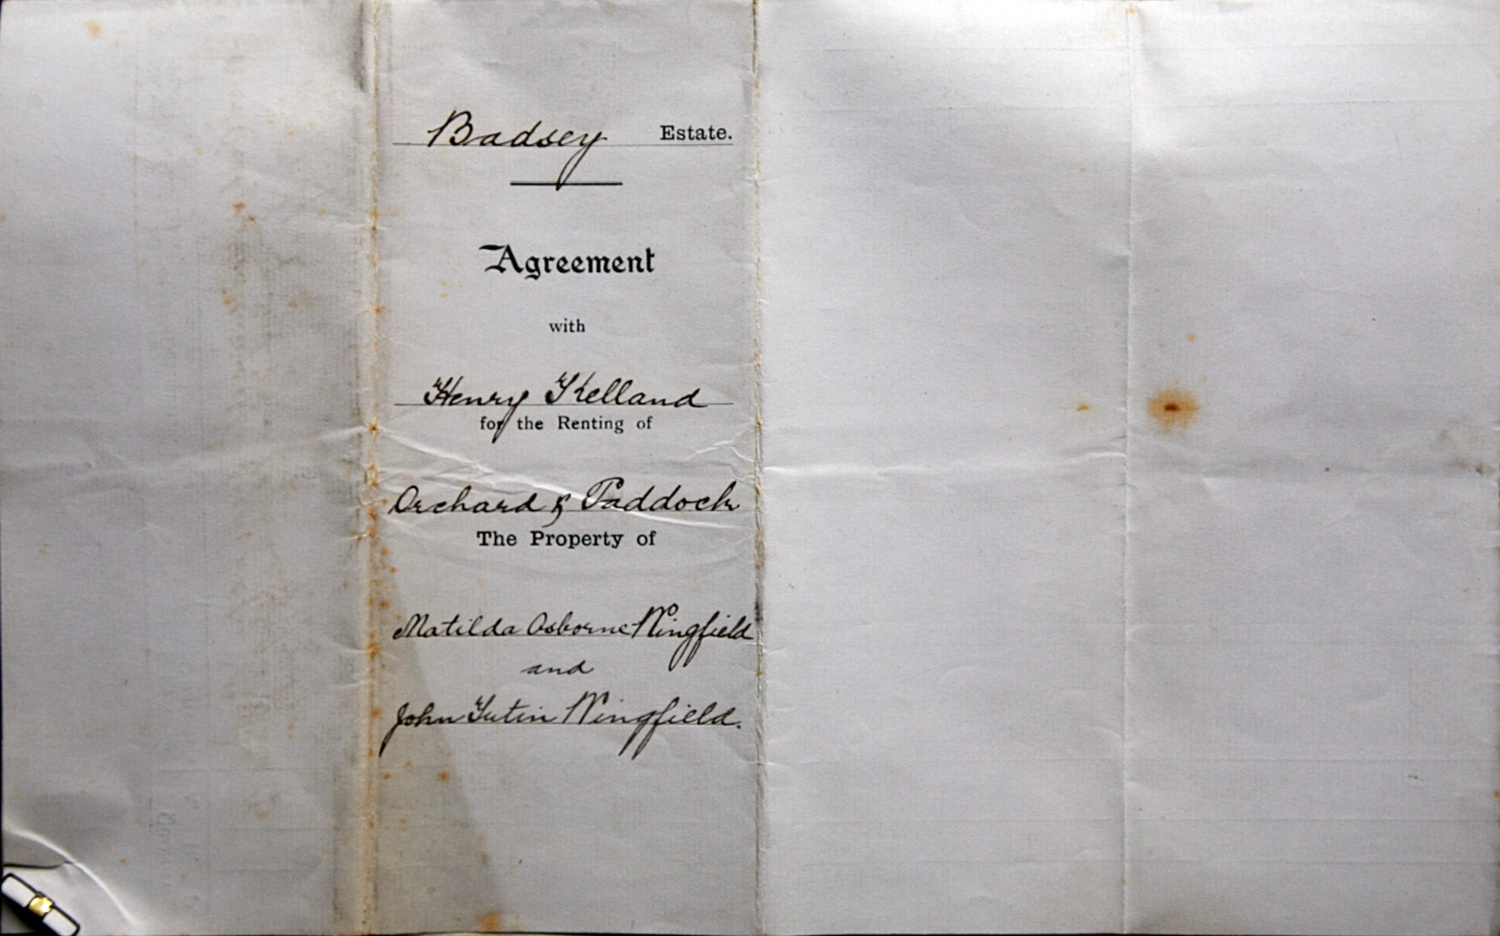 Badsey Estate.
Agreement
with
Henry Kelland
for the Renting of
Orchard & Paddock
The Property of
Matilda Osborne Wingfield
and
John Tutin Wingfield.